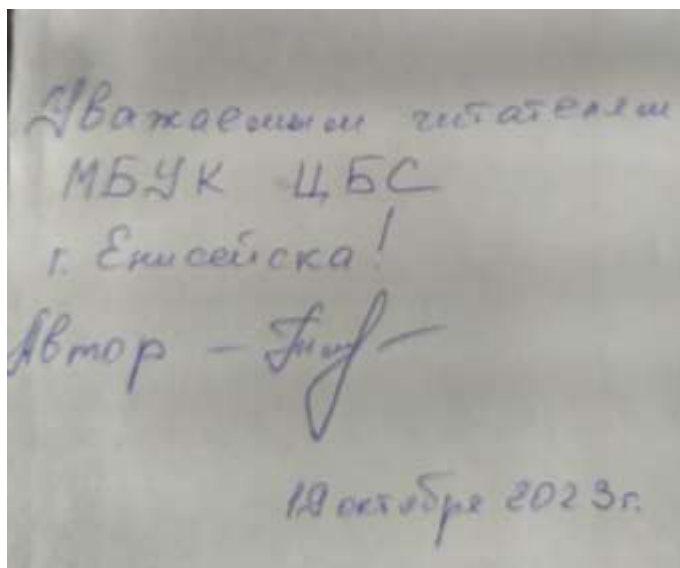 Уважаемым читателям
МБУК ЦБС
г. Енисейска!
Автор –
октября 2023г.